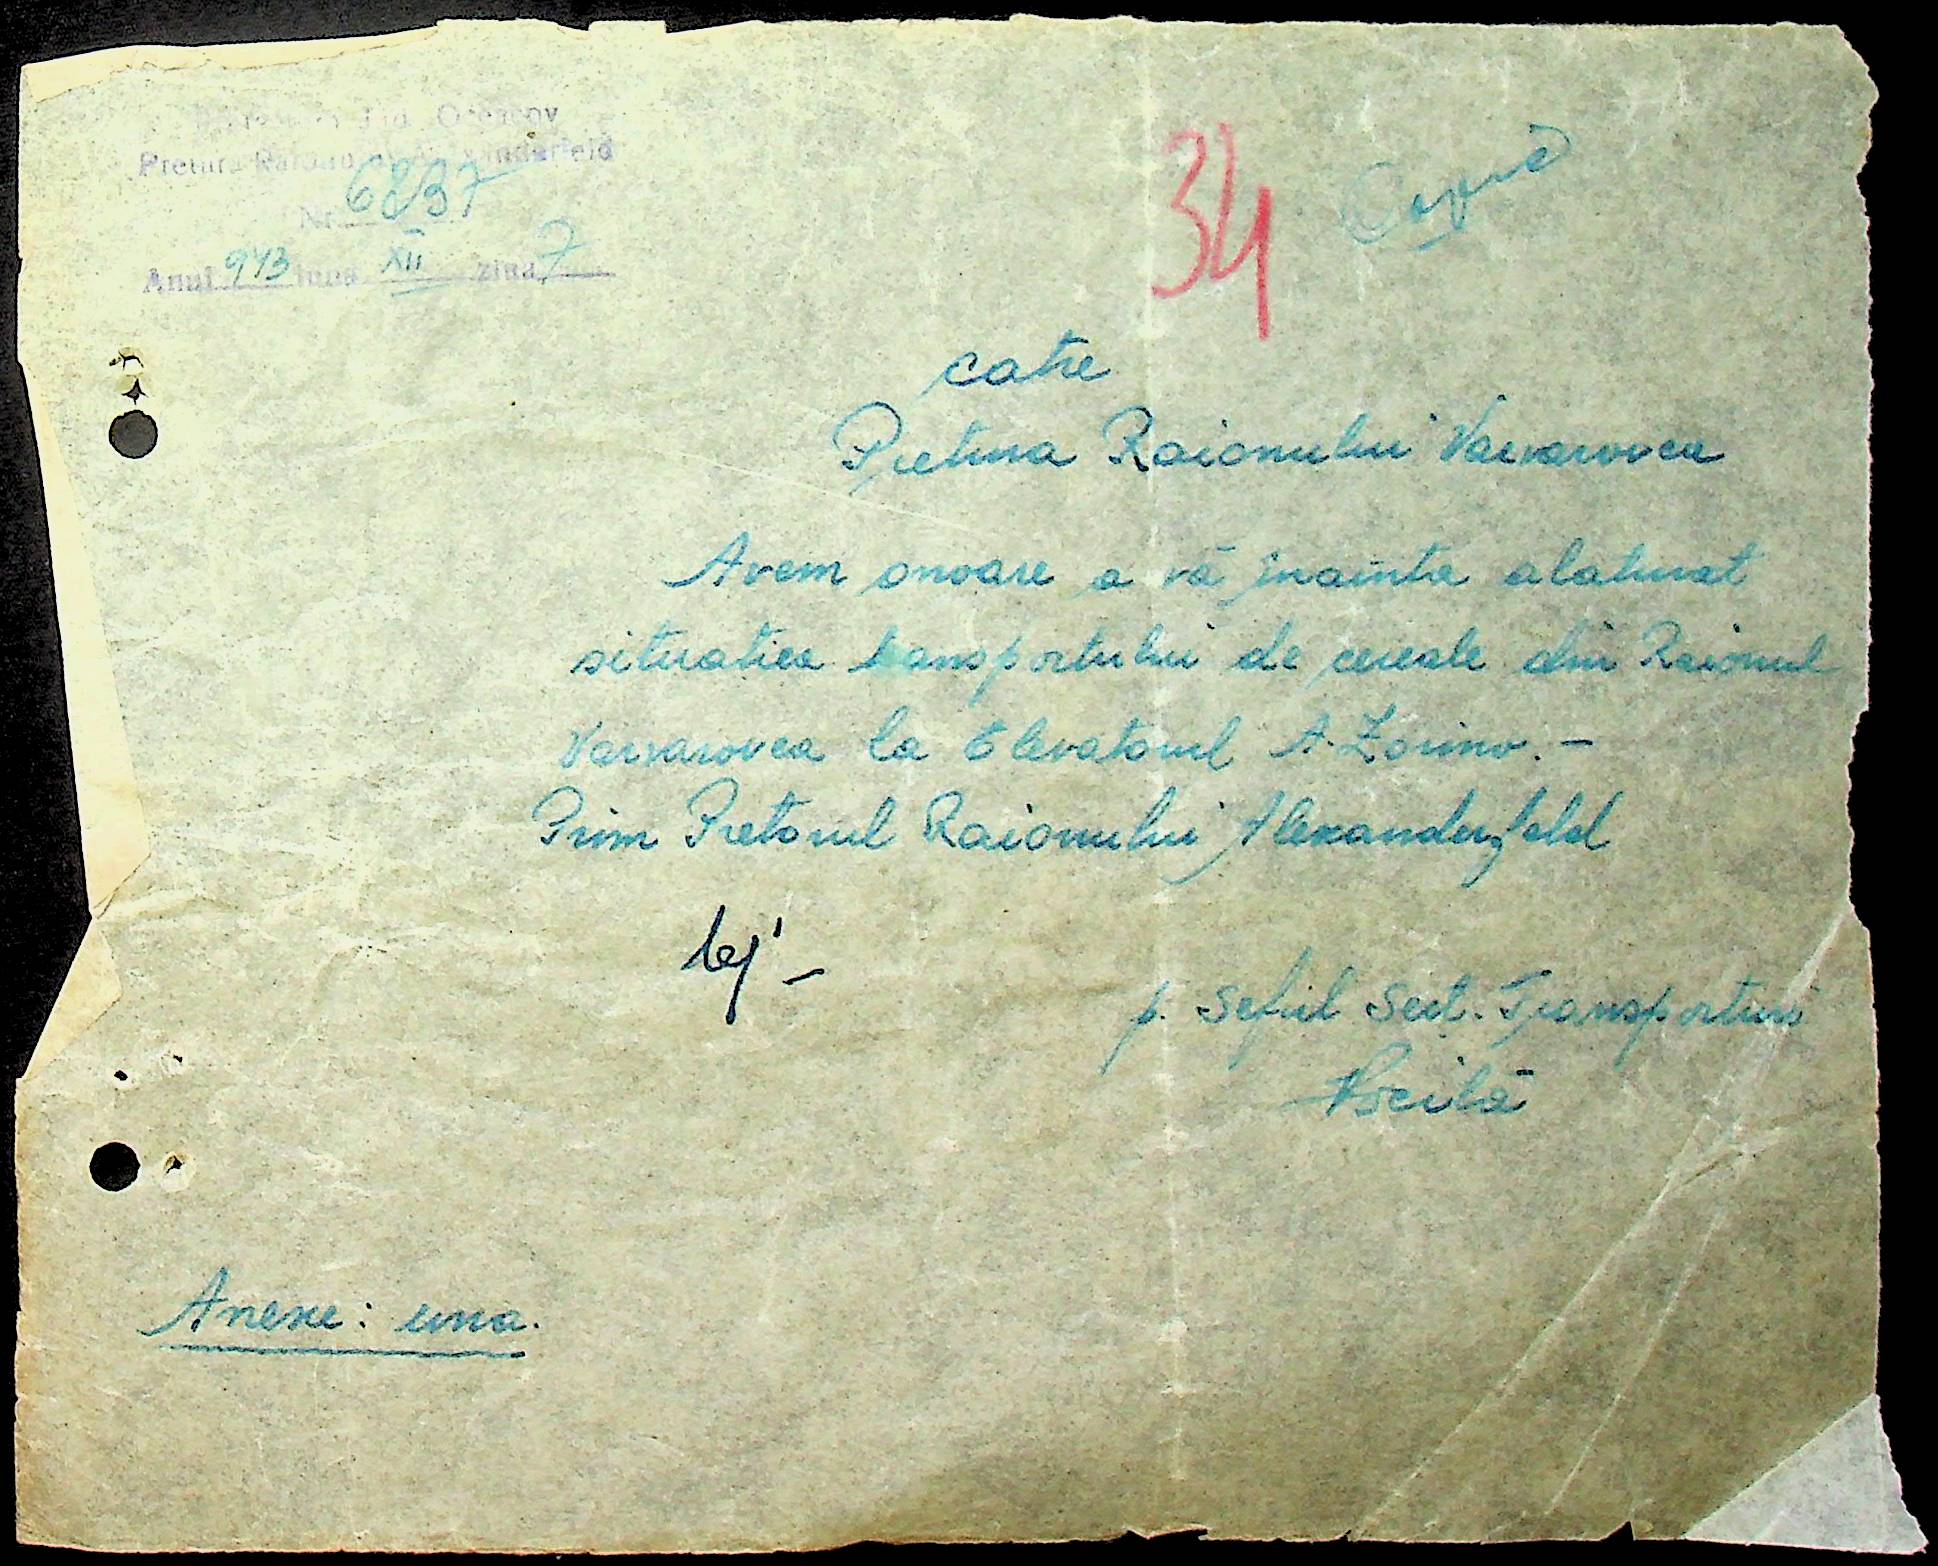 Jud. Oceacov
Pretura Raionului Alexanderfeld
Nr. 6237
Anul 943 luna XII ziua 7
34
Copie
catre
Pretura Raionului Varvarovca
Avem onoare a vă înainta alaturat
situatiea transportului de cereale din Raionul
Varvarovca la Elevatorul A. Zorino. -
Prim Pretorul Raionului Alexanderfeld
p. Seful Sect. Transporturi
Anexe: una.